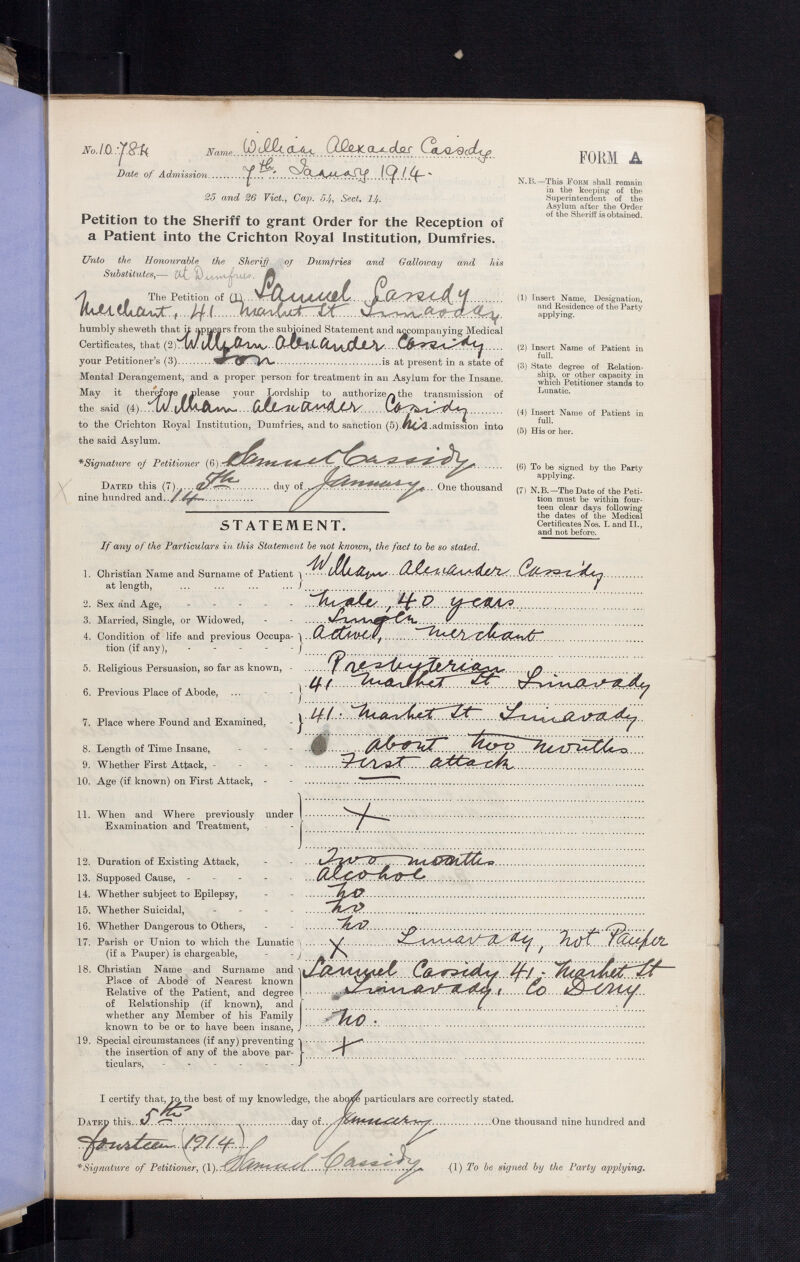 No. 10.784 Name William Alexander Cassidy
FORM A
Date of Admission 7th January 1914.
25 and 26 Vict., Cap. 54, Sect. 14.
Petition to the Sheriff to grant Order for the Reception of
a Patient into the Crichton Royal Institution, Dumfries.
Unto the Honourable the Sheriff of Dumfries and Galloway and his
Substitutes,— at Dumfries.
The Petition of (1) Samuel Cassidy
Merchant, 41 Market St Limavady
humbly sheweth that it appears from the subjoined Statement and accompanying Medical
Certificates, that (2) William Alexander Cassidy
your Petitioner's (3) Son is at present in a state of
Mental Derangement, and a proper person for treatment in an Asylum for the Insane.
May it therefore please your Lordship to authorize the transmission of
the said (4) William Alexander Cassidy
to the Crichton Royal Institution, Dumfries, and to sanction (5) his admission into
the said Asylum.
*Signature of Petitioner (6) Samuel Cassidy
Dated this (7) 5th day of January One thousand
nine hundred and 14
N.B.—This Form shall remain
in the keeping of the
Superintendent of the
Asylum after the Order
of the Sheriff is obtained.
(1) Insert Name, Designation,
and Residence of the Party
applying.
(2) Insert Name of Patient in
full.
(3) State degree of Relation-
ship, or other capacity in
which Petitioner stands to
Lunatic.
(4) Insert Name of Patient in
full.
(5) His or her.
(6) To be signed by the Party
applying.
(7) N.B.—The Date of the Peti-
tion must be within four-
teen clear days following
the dates of the Medical
Certificates Nos. I. and II.,
and not before.
STATEMENT.
If any of the Particulars in this Statement be not known, the fact to be so stated.
1. Christian Name and Surname of Patient William Alexander Cassidy
at length, ... ... ... ...
2. Sex and Age, - - - - - Male, 40 years
3. Married, Single, or Widowed, - - Single
4. Condition of life and previous Occupa- Active, Merchant
tion (if any), - - - - -
5. Religious Persuasion, so far as known, - Presbyterian
6. Previous Place of Abode, ... - 41 Market St Limavady
7. Place where Found and Examined, - 41. Market St Limavady
8. Length of Time Insane, - - - about two months
9. Whether First Attack, - - - - First attack
10. Age (if known) on First Attack, - - —
11. When and Where previously under X
Examination and Treatment, - -
12. Duration of Existing Attack, - - Two months
13. Supposed Cause, - - - - - Alcohol
14. Whether subject to Epilepsy, - - No
15. Whether Suicidal, - - - - No
16. Whether Dangerous to Others, - - No
17. Parish or Union to which the Lunatic X Limavady, not Pauper
(if a Pauper) is chargeable, - -
18. Christian Name and Surname and Samuel Cassidy 41. Market St
Place of Abode of Nearest known Limavady. Co Derry
Relative of the Patient, and degree
of Relationship (if known), and
whether any Member of his Family No.
known to be or to have been insane,
19. Special circumstances (if any) preventing X
the insertion of any of the above par-
ticulars, - - - - - -
I certify that, to the best of my knowledge, the above particulars are correctly stated.
Dated this 5th day of January One thousand nine hundred and
fourteen (1914)
*Signature of Petitioner, (1) Samuel Cassidy (1) To be signed by the Party applying.